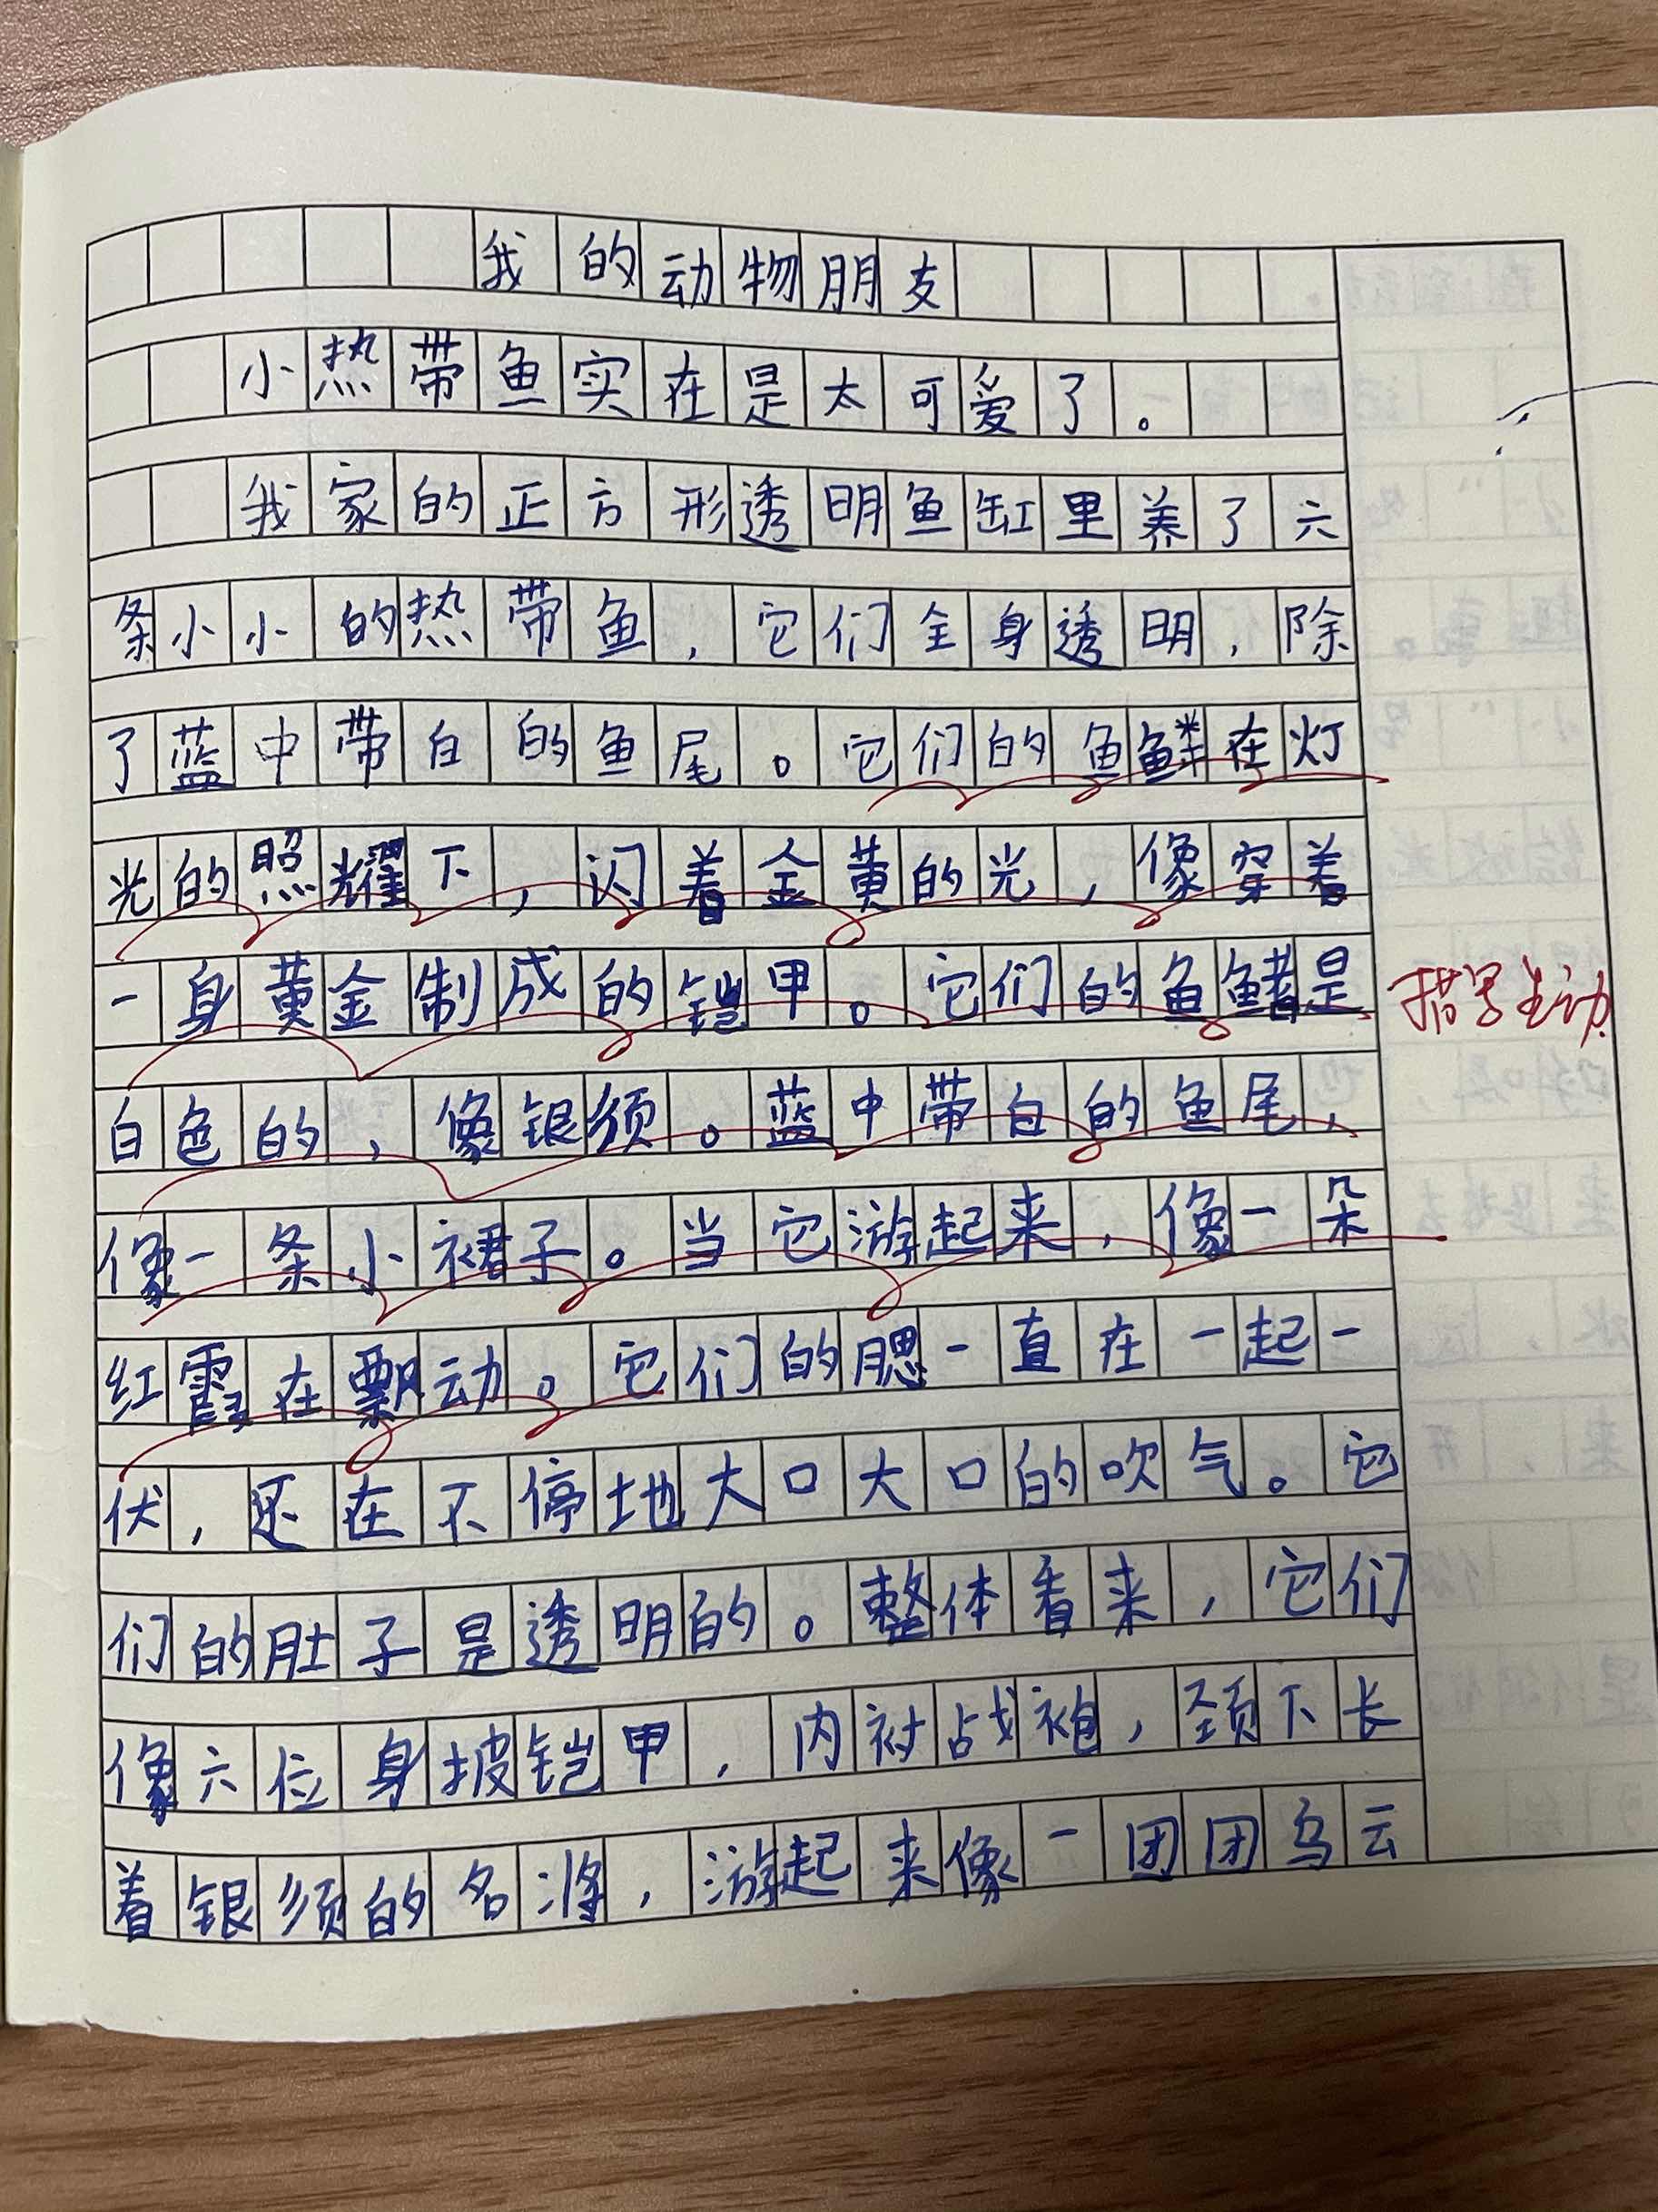 我的动物朋友
小热带鱼实在是太可爱了。
我家的正方形透明鱼缸里养了六
条小小的热带鱼，它们全身透明，除
了蓝中带白的鱼尾。它们的鱼鳞在灯
光的照耀下，闪着金黄的光，像穿着
一身黄金制成的铠甲。它们的鱼鳍是
白色的，像银须。蓝中带白的鱼尾，
像一条小裙子。当它游起来，像一朵
红霞在飘动。它们的腮一直在一起一
伏，还在不停地大口大口的吹气。它
们的肚子是透明的。整体看来，它们
像六位身披铠甲，内衬战袍，颈下长
着银须的名将，游起来像一团团乌云
描写生动